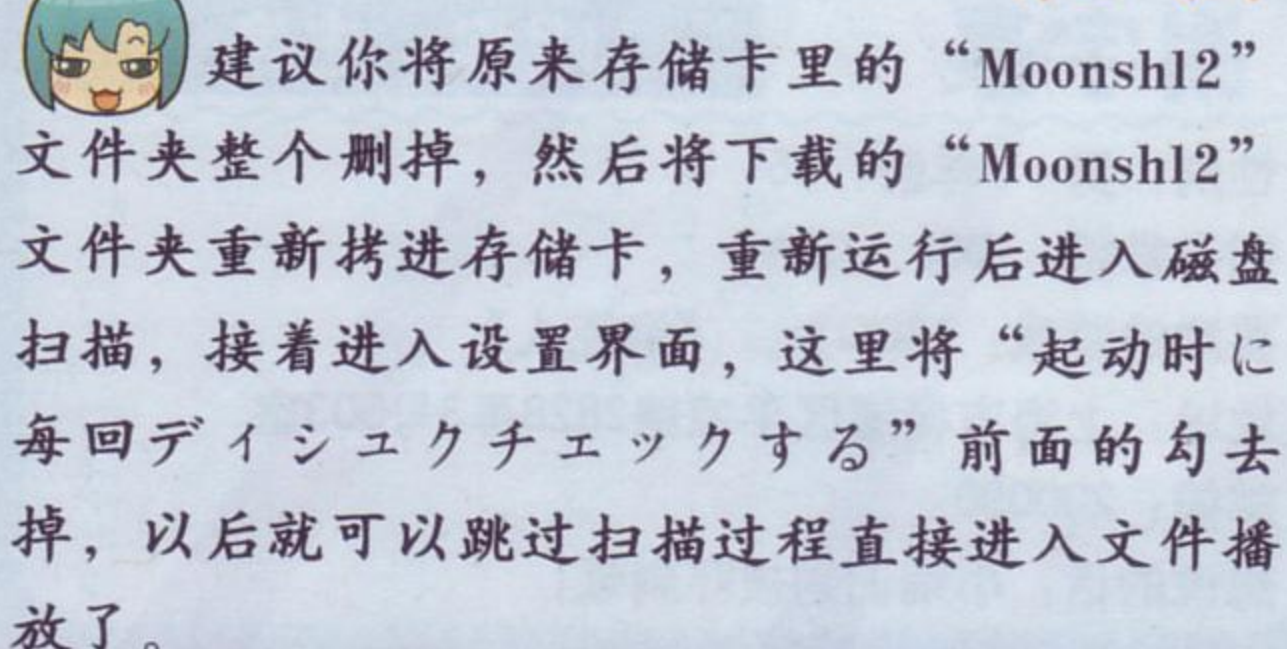 建议你将原来存储卡里的“Moonshl2”
文件夹整个删掉，然后将下载的“Moonshl2”
文件夹重新拷进存储卡，重新运行后进入磁盘
扫描，接着进入设置界面，这里将“起动时に
每回ディシュクチェックする”前面的勾去
掉，以后就可以跳过扫描过程直接进入文件播
放了。